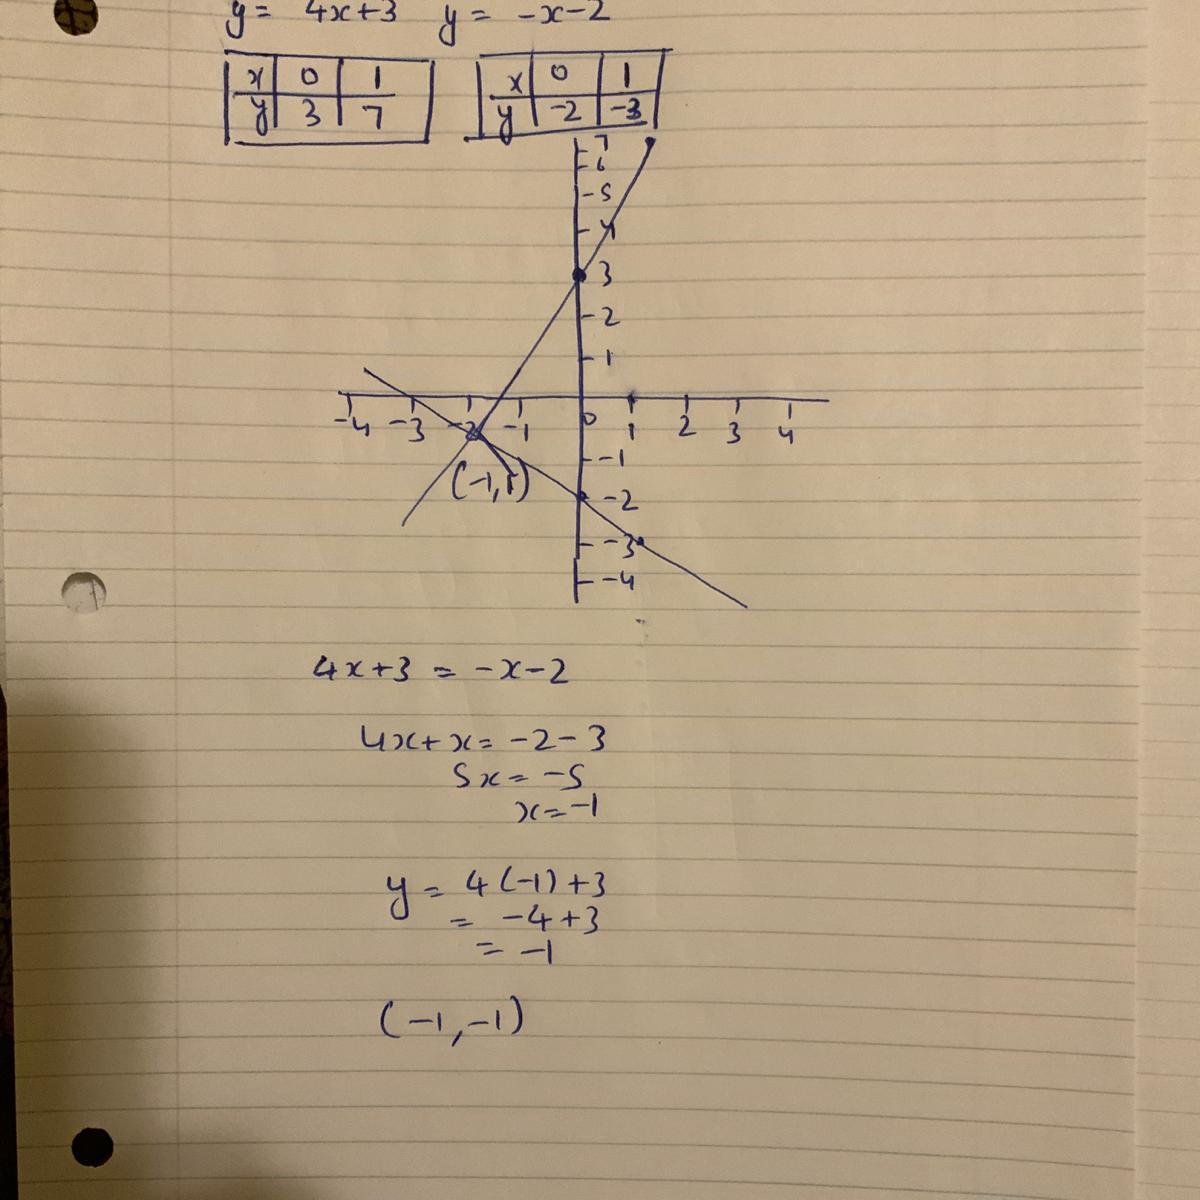 y = 4x+3 y = -x-2
x 0 1 x 0 1
y 3 7 y -2 -3
7
6
5
4
3
2
1
-4 -3 -2 -1 0 1 2 3 4
-1
(-1,1) -2
-3
-4
4x+3 = -x-2
4x+x = -2-3
5x = -5
x = -1
y = 4(-1)+3
= -4+3
= -1
(-1,-1)